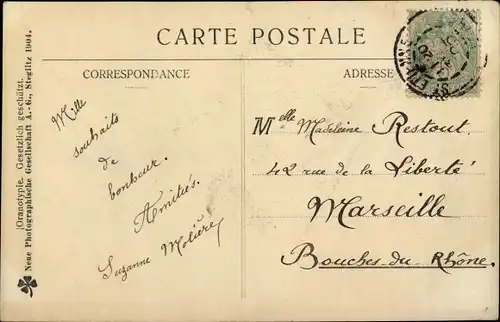 CARTE POSTALE
CORRESPONDANCE
ADRESSE
Mille
souhaits
de
bonheur.
Amitiés.
Suzanne Molière
Melle Madeleine Restout
42 rue de la Liberté
Marseille
Bouches-du-Rhône.
(Oranotypie. Gesetzlich geschützt.
Neue Photographische Gesellschaft A.-G., Steglitz 1904.